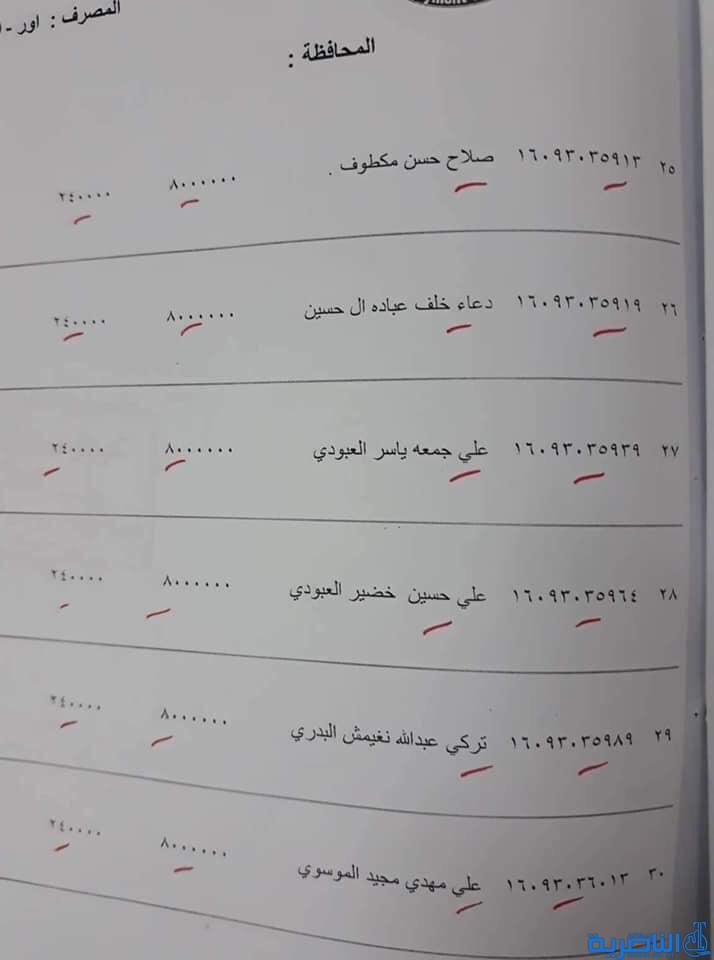 المصرف : اور -
المحافظة :
٢٥ ١٦٠٩٣٠٣٥٩١٣ صلاح حسن مكطوف . ٨٠٠٠٠٠٠ ٢٤٠٠٠٠
٢٦ ١٦٠٩٣٠٣٥٩١٩ دعاء خلف عباده ال حسين ٨٠٠٠٠٠٠ ٢٤٠٠٠٠
٢٧ ١٦٠٩٣٠٣٥٩٣٩ علي جمعه ياسر العبودي ٨٠٠٠٠٠٠ ٢٤٠٠٠٠
٢٨ ١٦٠٩٣٠٣٥٩٦٤ علي حسين خضير العبودي ٨٠٠٠٠٠٠ ٢٤٠٠٠٠
٢٩ ١٦٠٩٣٠٣٥٩٨٩ تركي عبدالله نغيمش البدري ٨٠٠٠٠٠٠ ٢٤٠٠٠٠
٣٠ ١٦٠٩٣٠٣٦٠١٣ علي مهدي مجيد الموسوي ٨٠٠٠٠٠٠ ٢٤٠٠٠٠
الناصرية